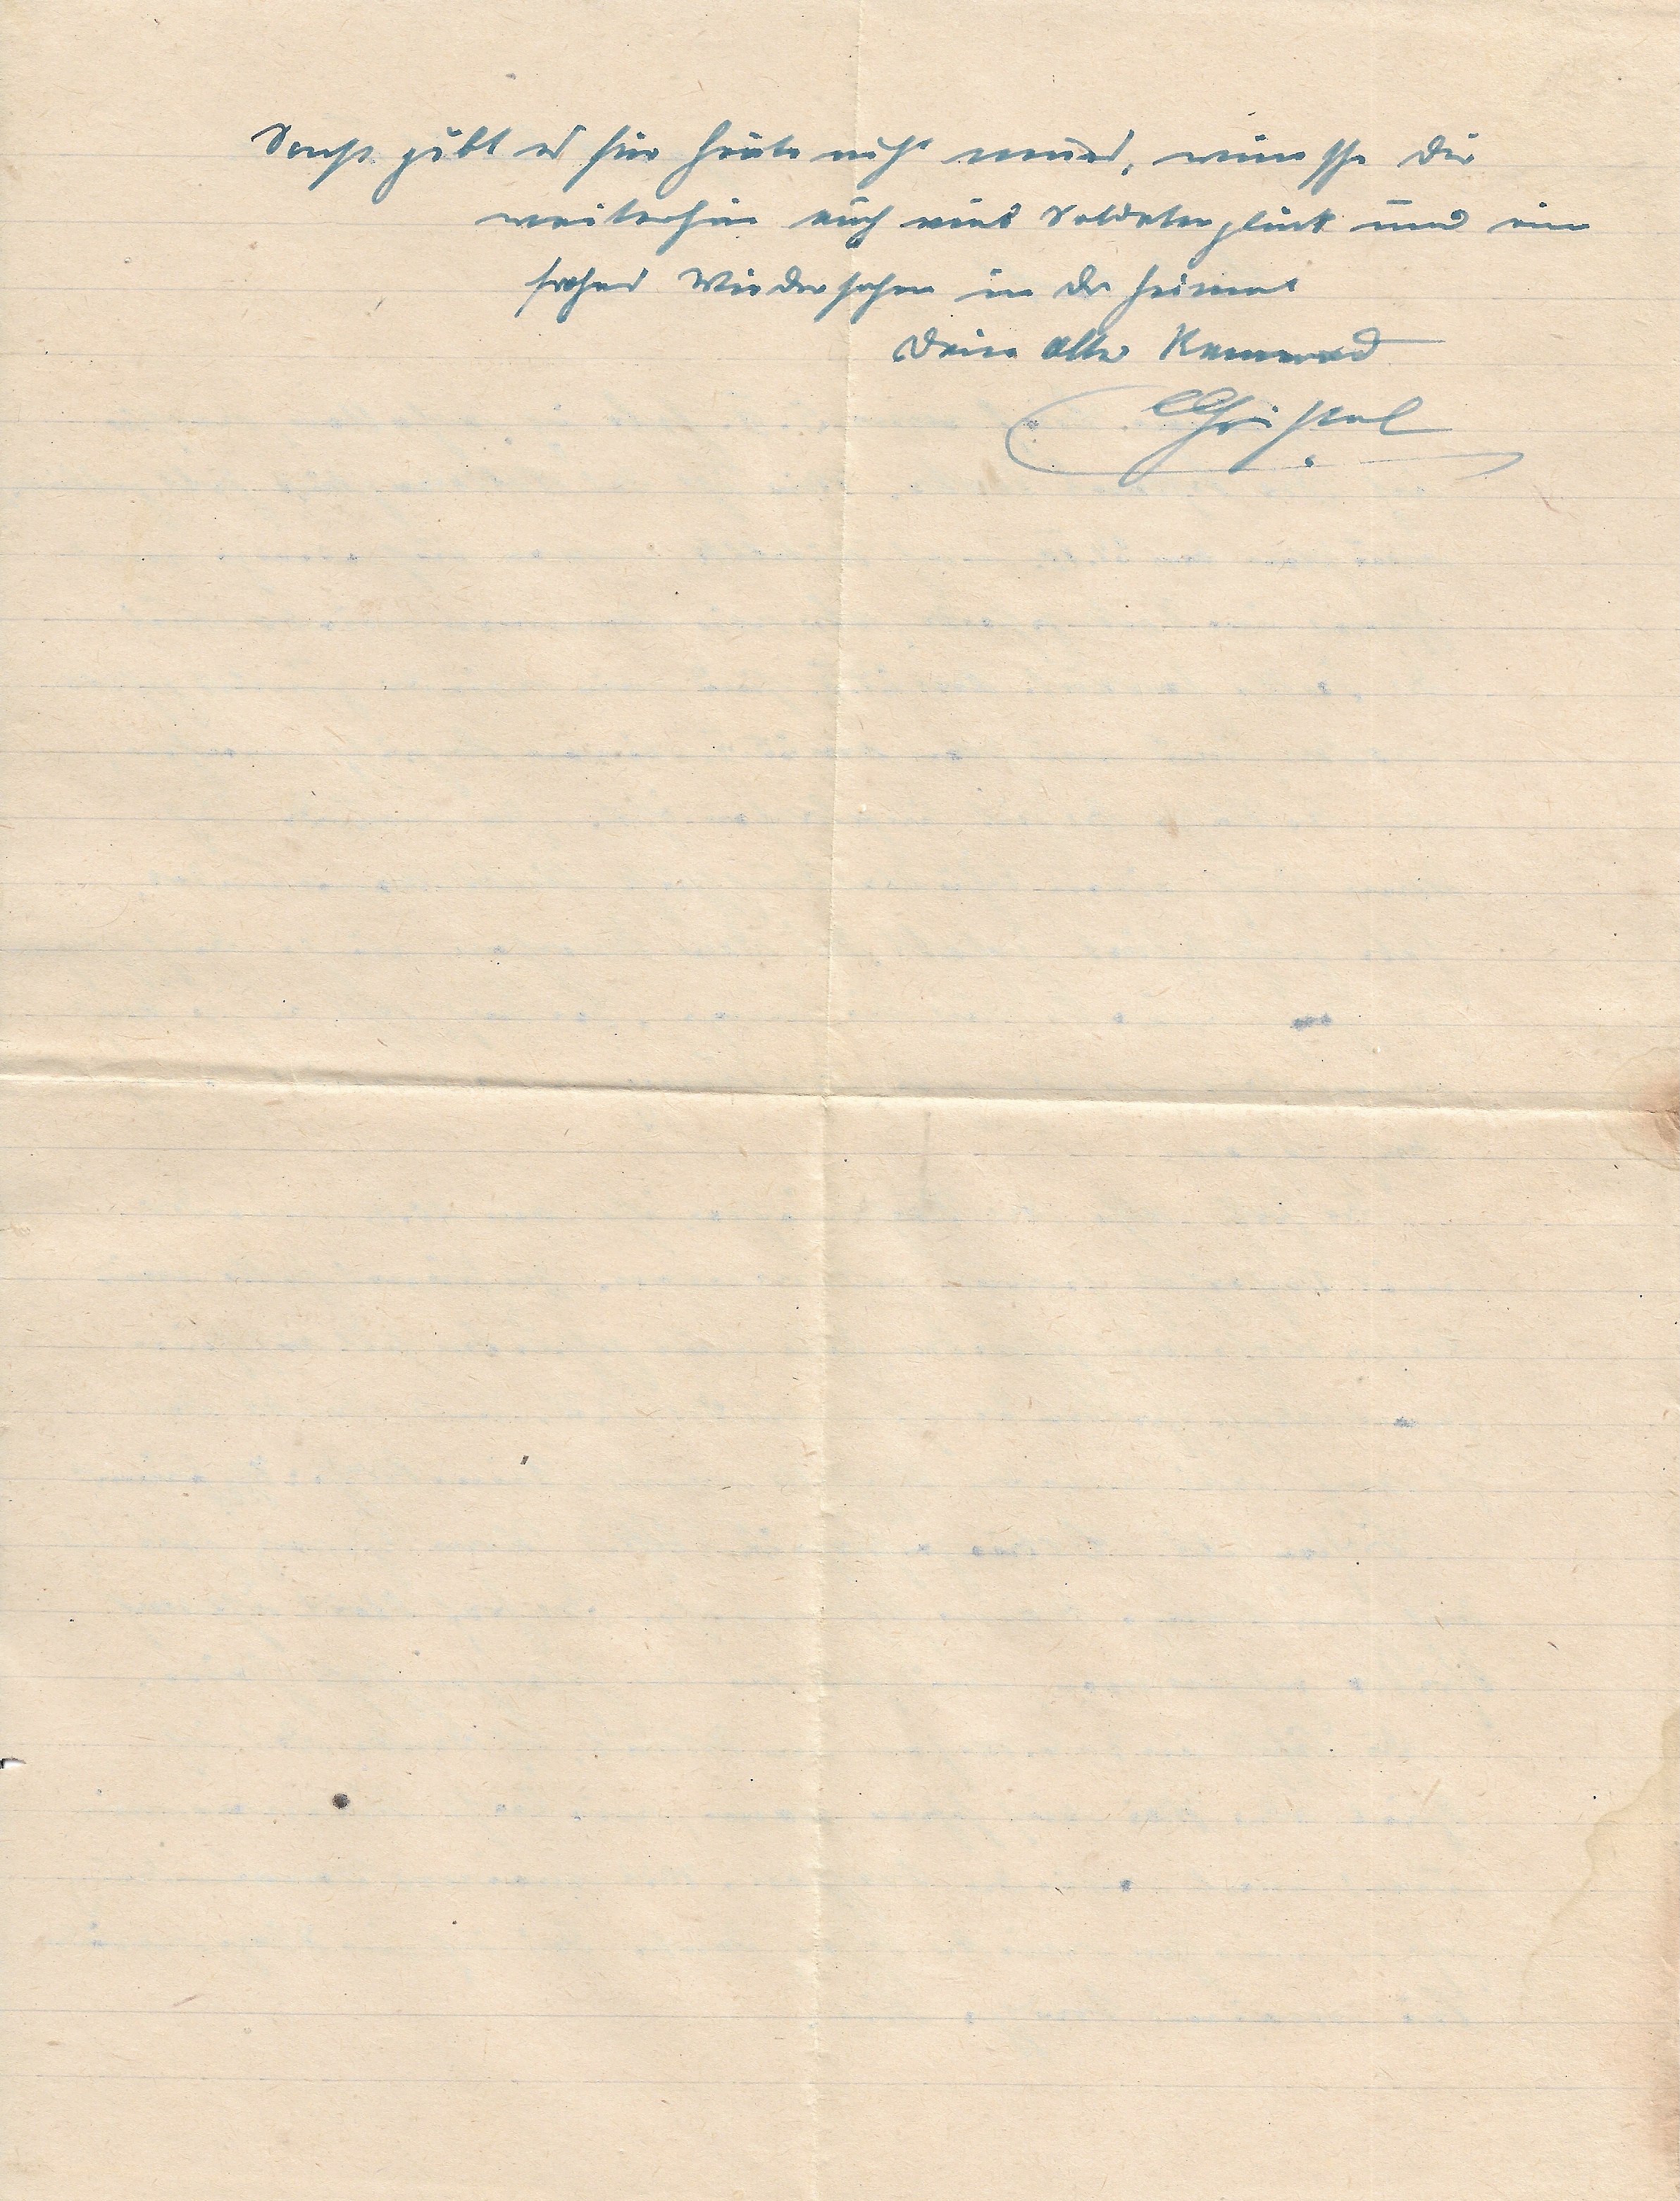 Sonst gibt es für heute nicht neues, wünsche Dir
weiterhin auch viel Soldatenglück und ein
frohes Wiedersehen in der Heimat
Dein alter Kamerad
Christel